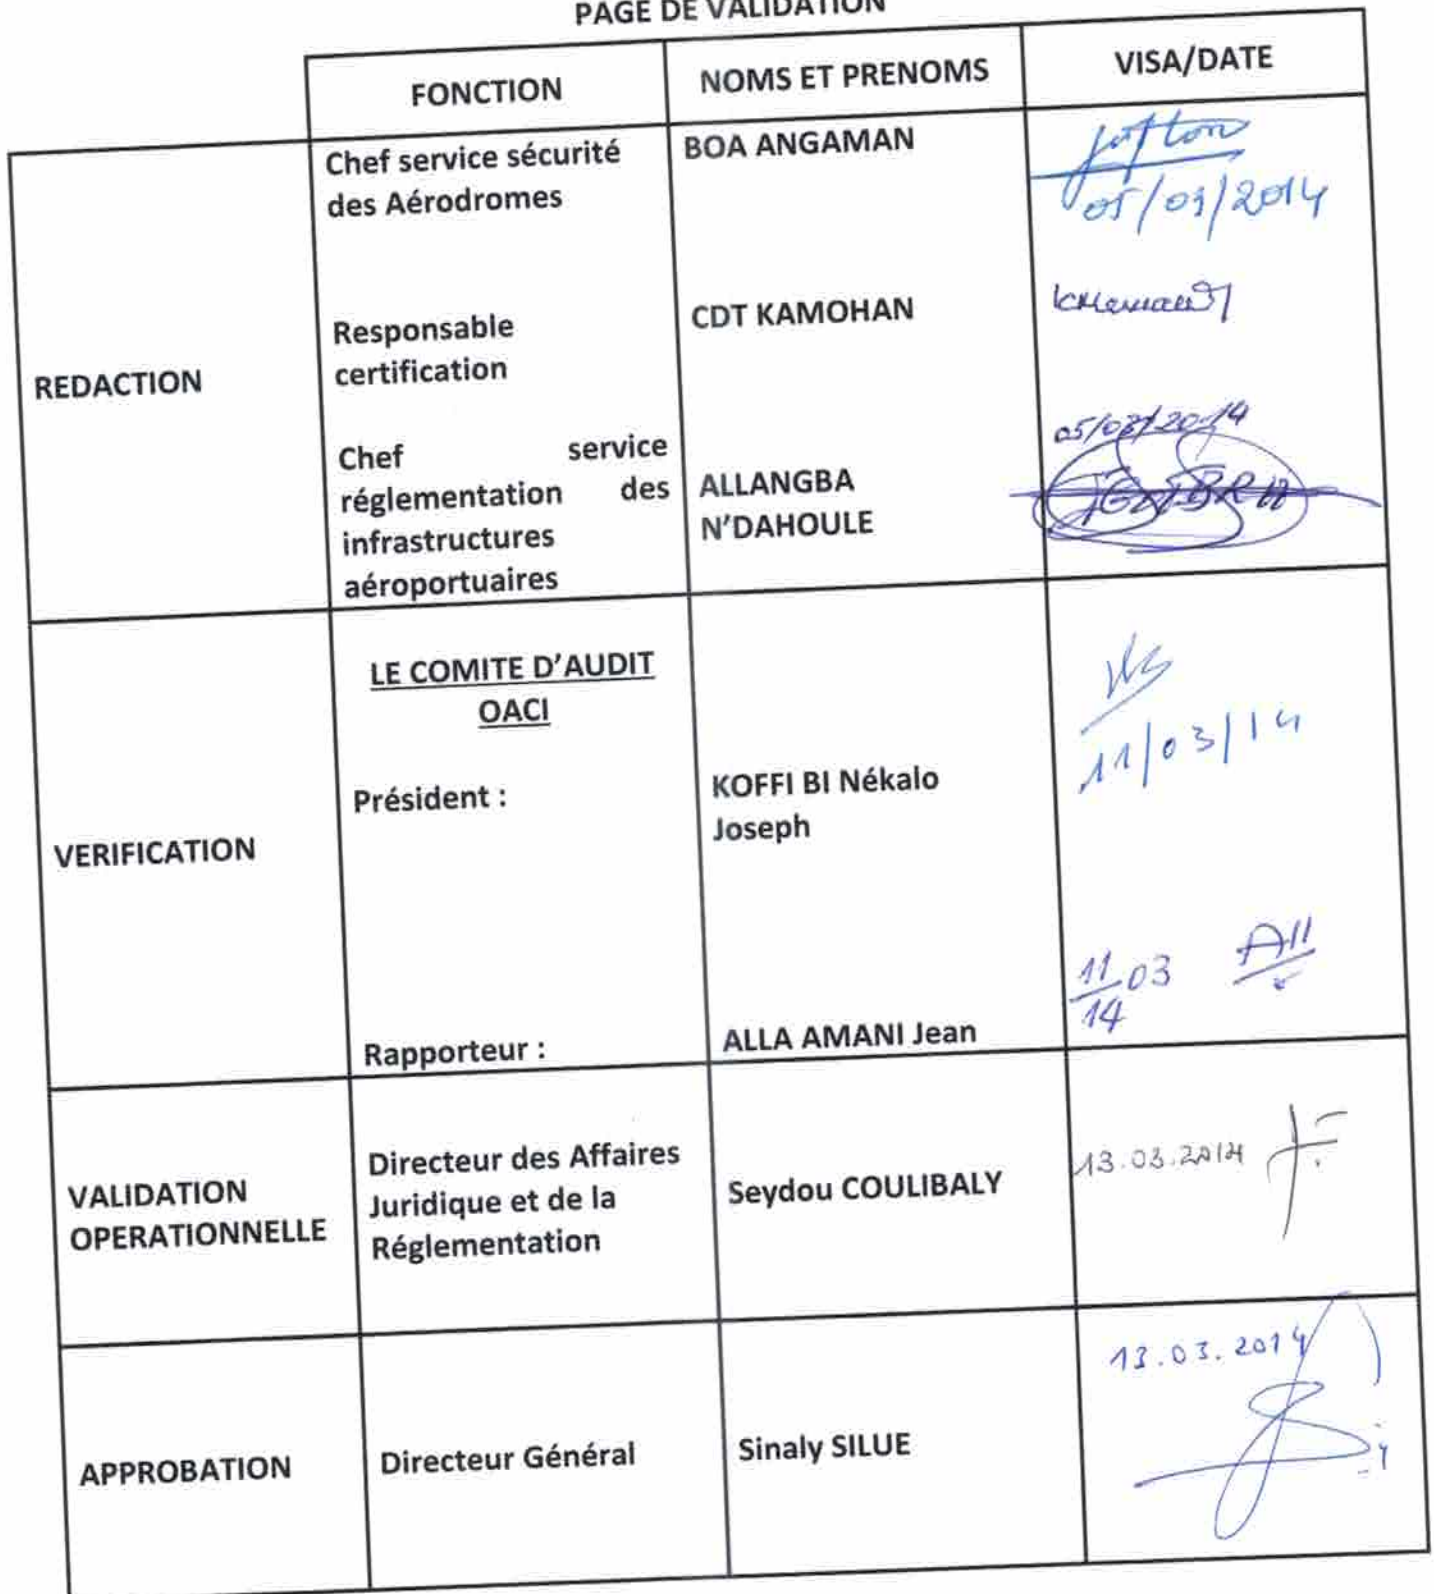 PAGE DE VALIDATION
FONCTION
NOMS ET PRENOMS
VISA/DATE
REDACTION
Chef service sécurité
des Aérodromes
BOA ANGAMAN
Responsable
certification
CDT KAMOHAN
Chef service
réglementation des
infrastructures
aéroportuaires
ALLANGBA
N'DAHOULE
05/03/2014
VERIFICATION
LE COMITE D'AUDIT
OACI
Président :
KOFFI BI Nékalo
Joseph
11/03/14
Rapporteur :
ALLA AMANI Jean
11 03
14
All
VALIDATION
OPERATIONNELLE
Directeur des Affaires
Juridique et de la
Réglementation
Seydou COULIBALY
13.03.2014
APPROBATION
Directeur Général
Sinaly SILUE
13.03.2014